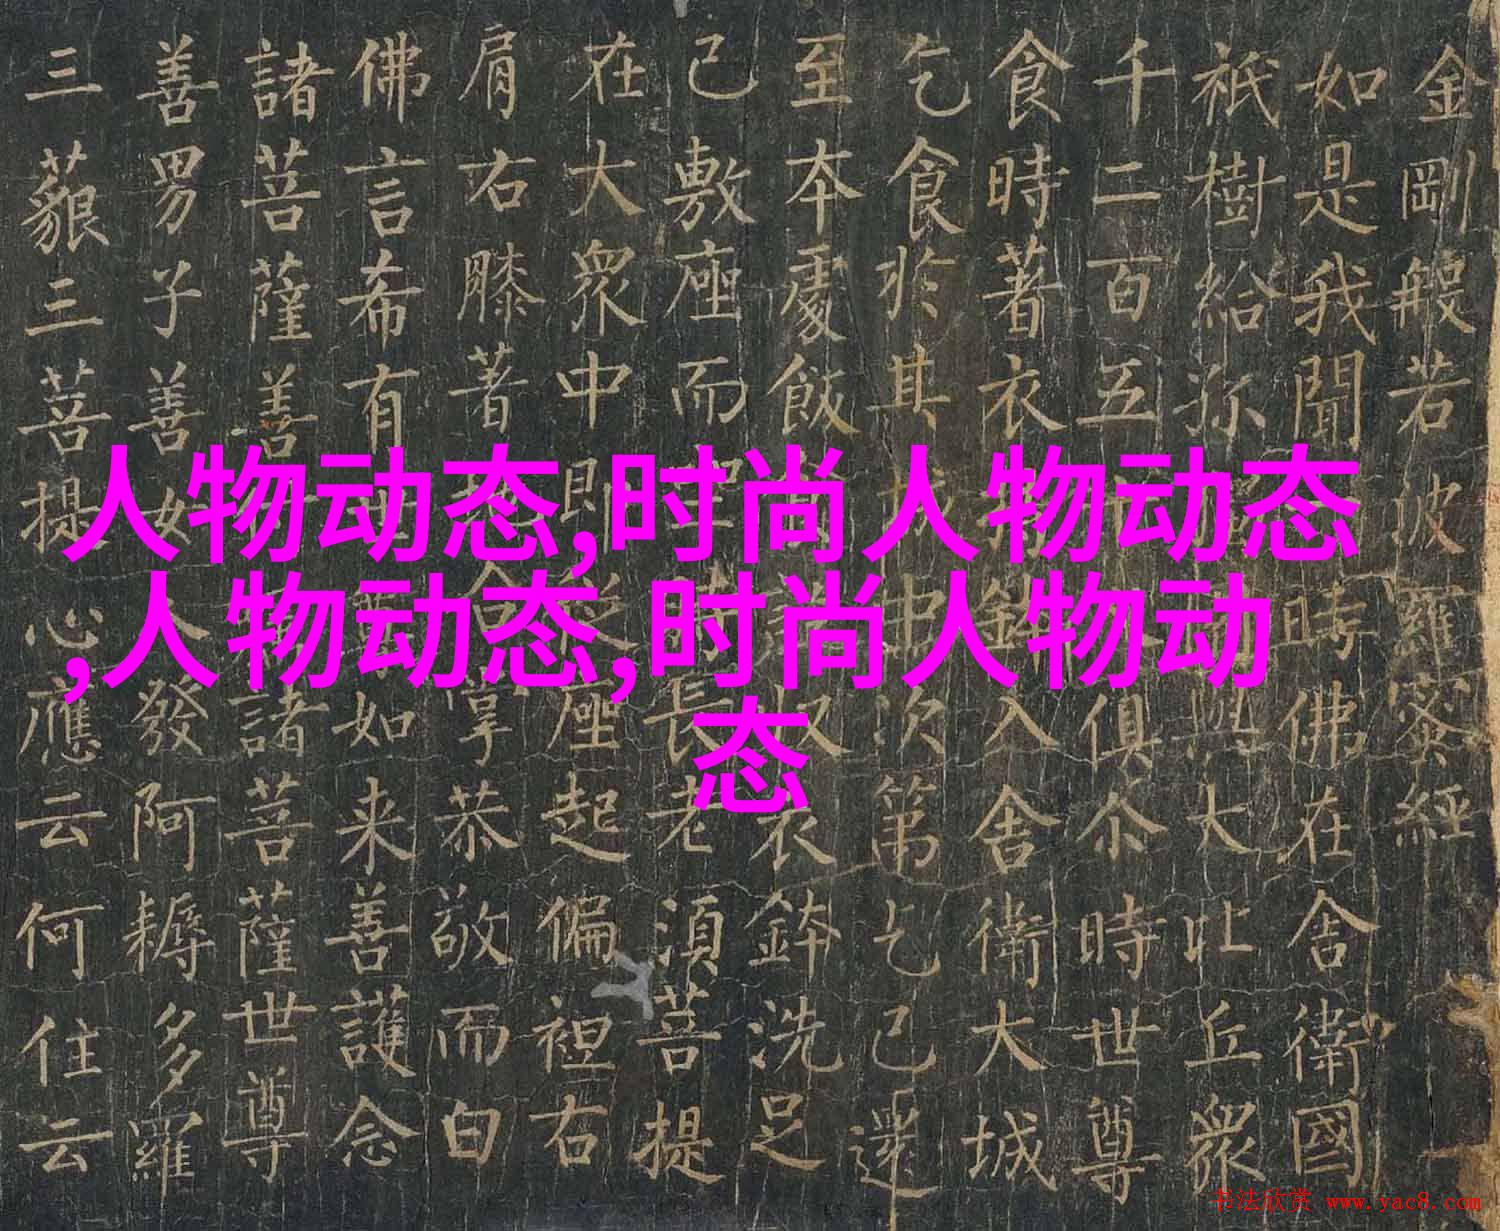 金剛般若波羅蜜經
如是我聞時佛在舍衛國
祇樹給孤大比丘眾
千二百五俱尒時世尊
食時著衣鉢入舍衛大城
乞食於其城中次第乞已還
至本處飯收衣鉢洗足
已敷座而長老須菩提
在大眾中即座起偏袒右
肩右膝著合掌恭敬而白
佛言希有如来善護念
諸菩薩善諸菩薩世尊
善男子善女人發阿耨多羅
三藐三菩提心應云何住云
人物动态,时尚人物动态
,人物动态,时尚人物动
态
书法欣赏 www.yac8.com